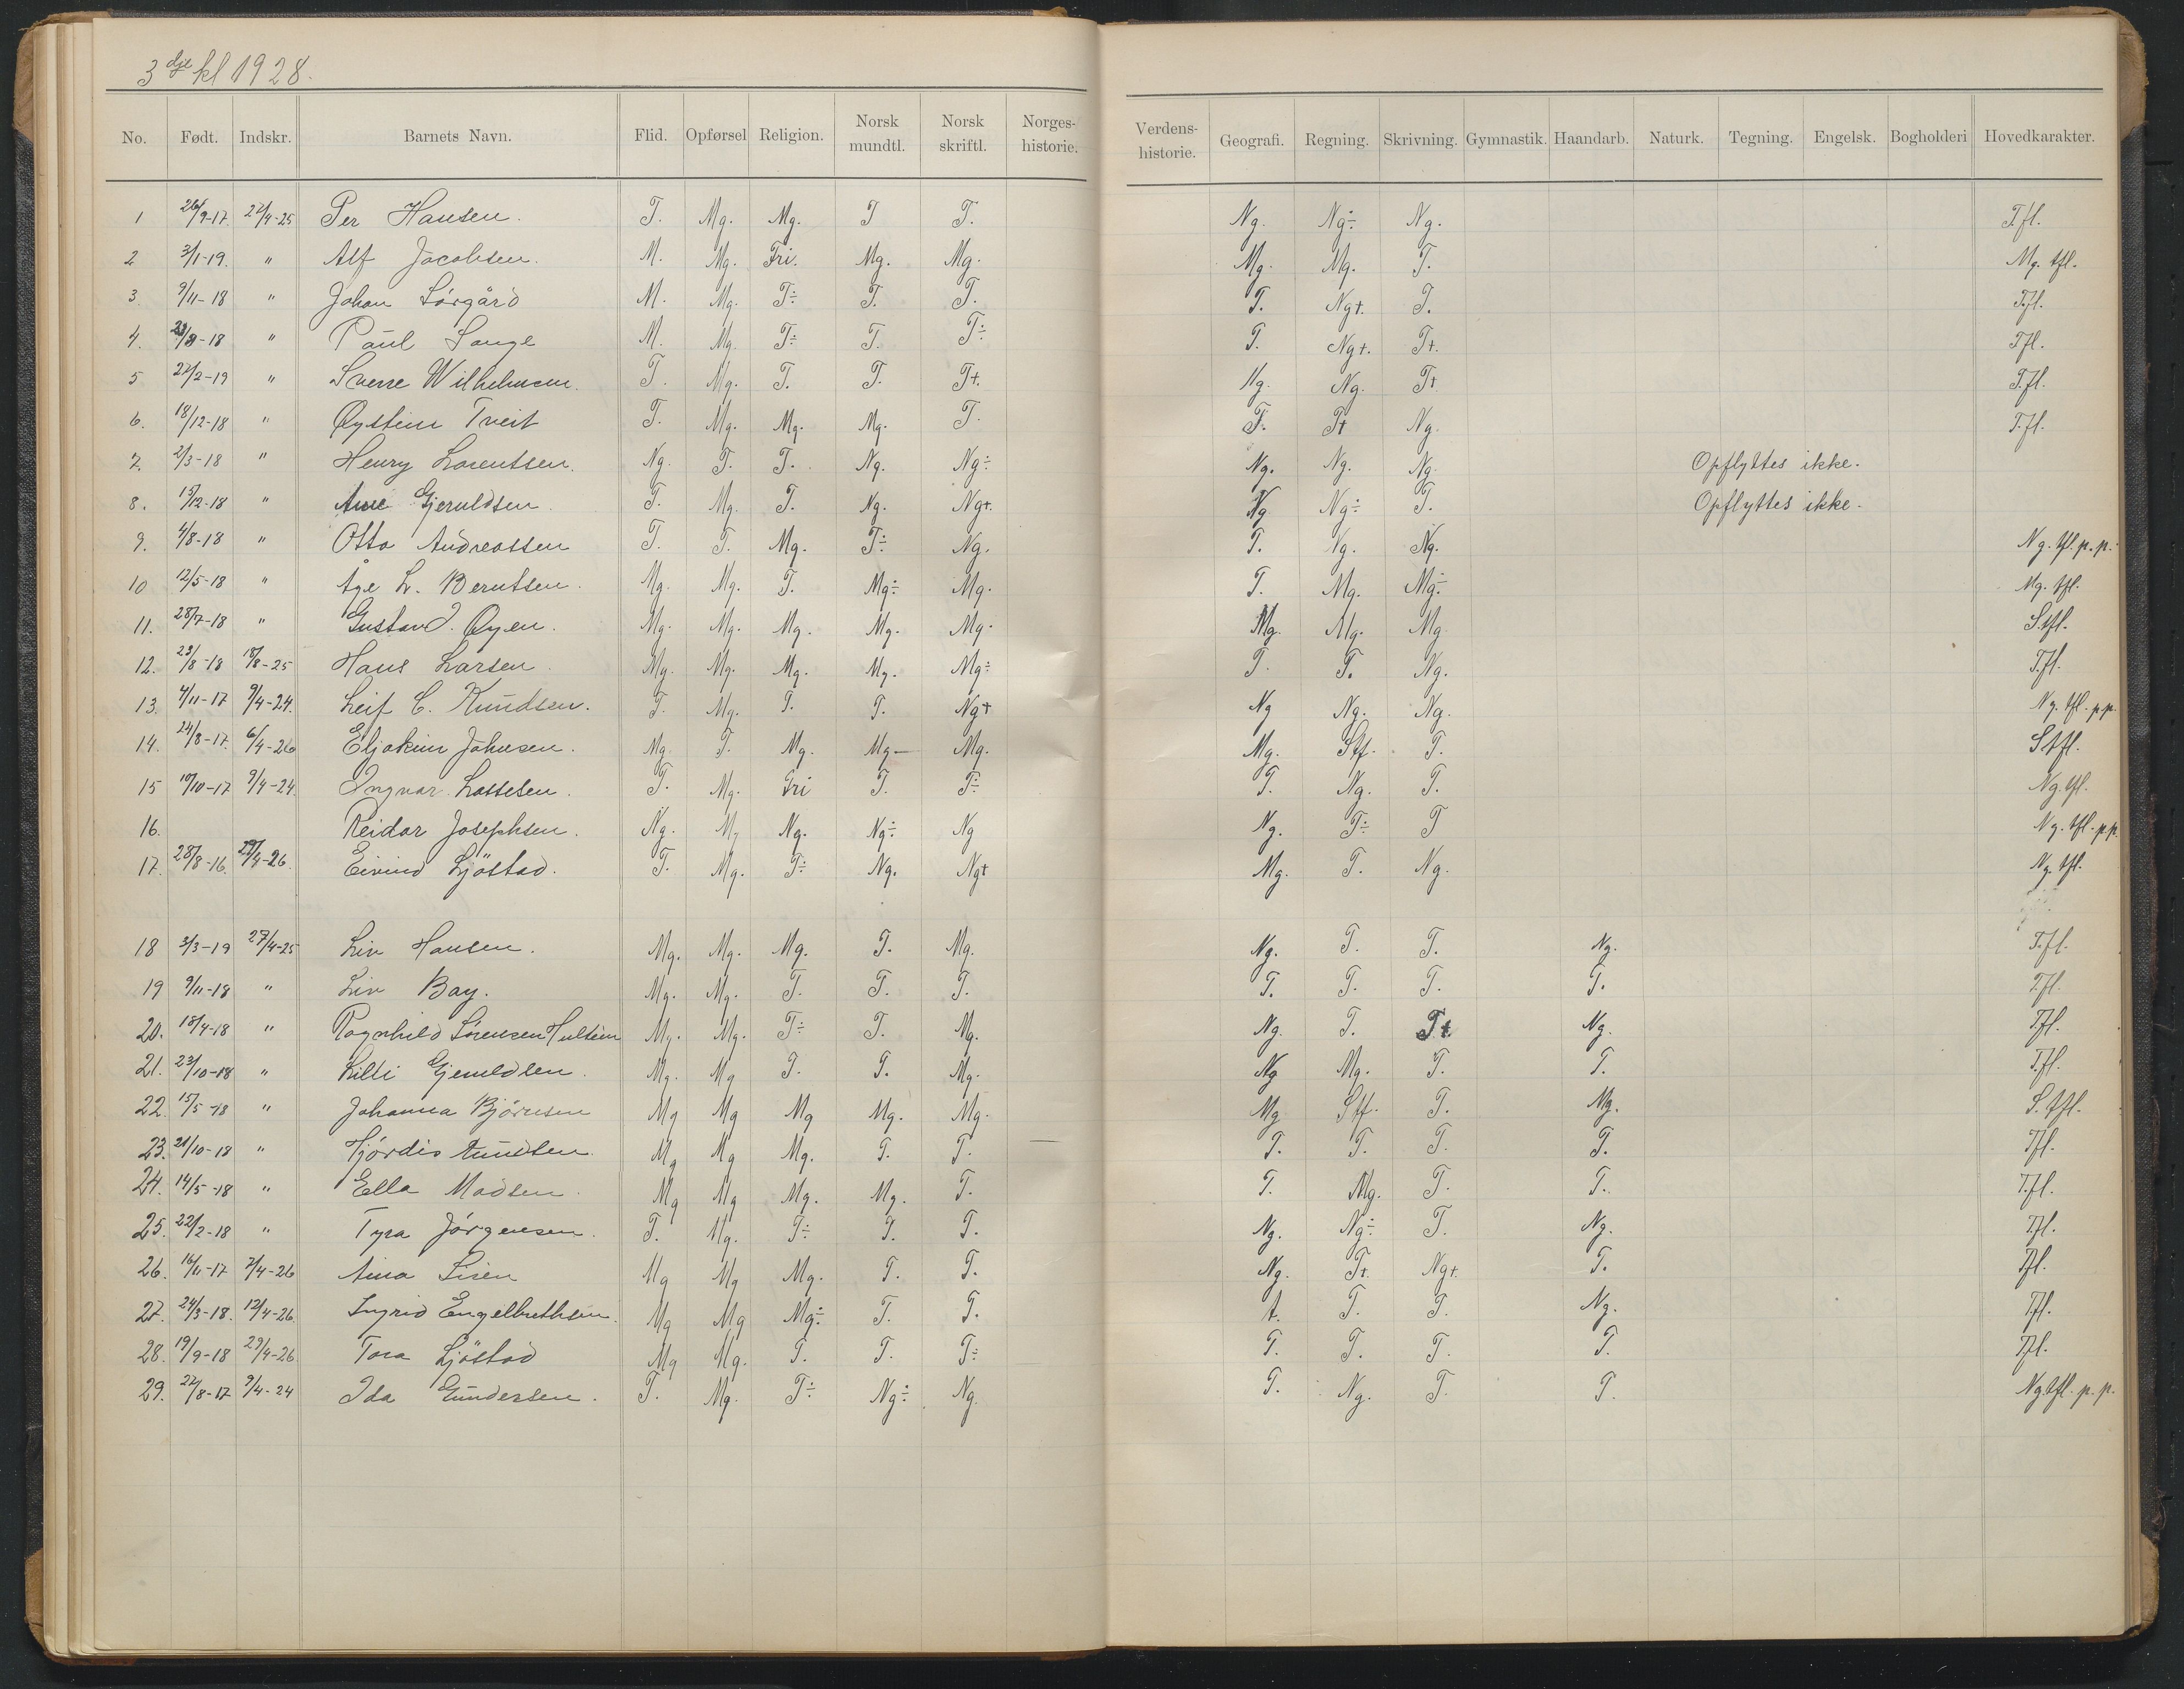 3dje kl 1928.
No. Født. Indskr. Barnets Navn. Flid. Opførsel Religion. Norsk mundtl. Norsk skriftl. Norges-historie. Verdens-historie. Geografi. Regning. Skrivning. Gymnastik. Haandarb. Naturk. Tegning. Engelsk. Bogholderi Hovedkarakter.
1 26/9-17. 27/4-25 Per Hansen. T. Mg. Mg. T T. Ng. Ng÷ Ng. T.fl.
2 3/1-19. " Alf Jacobsen. M. Mg. Fri. Mg. Mg. Mg. Mg. T. Mg. tfl.
3. 9/11-18 " Johan Sörgård M. Mg. T÷ T. T. T. Ng+. T. T.fl.
4. 29/8-18 " Paul Lange M. Mg. T÷ T. T÷ T. Ng+. T+. Tfl.
5 27/2-19 " Sverre Wilhelmsen. T. Mg. T. T. T+. Ng. Ng. T+ T.fl.
6. 18/12-18 " Øystein Tveit T. Mg. Mg. Mg. T. T. T+ Ng. T.fl.
7. 2/3-18 " Henry Lorentsen. Ng. T. T. Ng. Ng÷ Ng. Ng. Ng. Opflyttes ikke.
8. 15/12-18 " Arne Gjeruldsen. T. Mg. T. Ng. Ng+. Ng Ng÷ T. Opflyttes ikke.
9. 4/8-18 " Otto Andreassen T. T. Mg. T÷ Ng. T. Ng. Ng. Ng. tfl. p.p.
10 12/5-18 " Åge L. Berntsen. Mg. Mg. T. Mg÷ Mg. T. Mg. Mg÷ Mg. tfl.
11. 28/7-18 " Gustav J. Øyen. Mg. Mg. Mg. Mg. Mg. Mg. Mg. Mg. S.tfl.
12. 23/8-18 18/8-25 Hans Larsen. Mg. Mg. Mg. Mg. Mg÷ T. T. Ng. T.fl.
13. 4/11-17 9/4-24. Leif C. Knudsen. T. Mg. T. T. Ng+ Ng Ng. Ng. Ng. tfl. p.p.
14. 24/8-17. 6/4-26 Eljakim Johnsen. Mg. T. Mg. Mg- Mg. Mg. Stf. T. Stfl.
15 10/10-17 9/4-24. Ingvar Lassesen. T. Mg. Fri T. T÷ T. Ng. T. Ng. tfl.
16. Reidar Josephsen. Ng. Mg Ng. Ng÷ Ng Ng. T÷ T Ng. tfl. p.p.
17. 28/8-16. 29/4-26. Eivind Ljöstad. T. Mg. T÷ Ng. Ng+ Mg. T. Ng. Ng. tfl.
18 3/3-19 27/4-25 Liv Hansen. Mg. Mg. Mg. T. Mg. Ng. T. T. Ng. T.fl.
19 9/11-18 " Liv Bay. Mg. Mg. T. T. T. T. T. T. T. T.fl.
20. 18/4-18 " Ragnhild Sörensen Mg. Mg. T÷ T. Mg. Ng. T. T+ Ng. T.fl.
21. 23/10-18 " Lilli Mg. Mg T. T. Mg. Ng Mg. T. T. T.fl.
22. 15/5-18 " Johanna Björnsen Mg Mg Mg Mg. Mg. Mg Stf. T. Mg. S.tfl.
23. 21/10-18 " Hjördis Knudsen. Mg Mg Mg. T. T. T. T. T. T. Tfl.
24. 14/5-18 " Ella Madsen. Mg Mg Mg. Mg. T. T. Mg. T. T. T.fl.
25. 22/2-18 " Tyra Jörgensen. T. Mg. T÷ T. T. Ng. Ng÷ T. Ng. T.fl.
26. 16/11-17 7/4-26 Mg Mg Mg. T. T. Ng. T+. Ng+. T. Tfl.
27. 24/3-18. 12/4-26. Ingrid Engelbrethsen. Mg Mg Mg÷ T. T. t. T. T. Ng. T.fl.
28. 19/9-18 29/4-26 Tora Ljöstad Mg Mg. T. T. T÷ T. T. T. T. Tfl.
29. 22/8-17 9/4-24 Ida Gundersen. T. Mg. T÷ Ng÷ Ng. T. Ng. T. T. Ng. tfl. p.p.